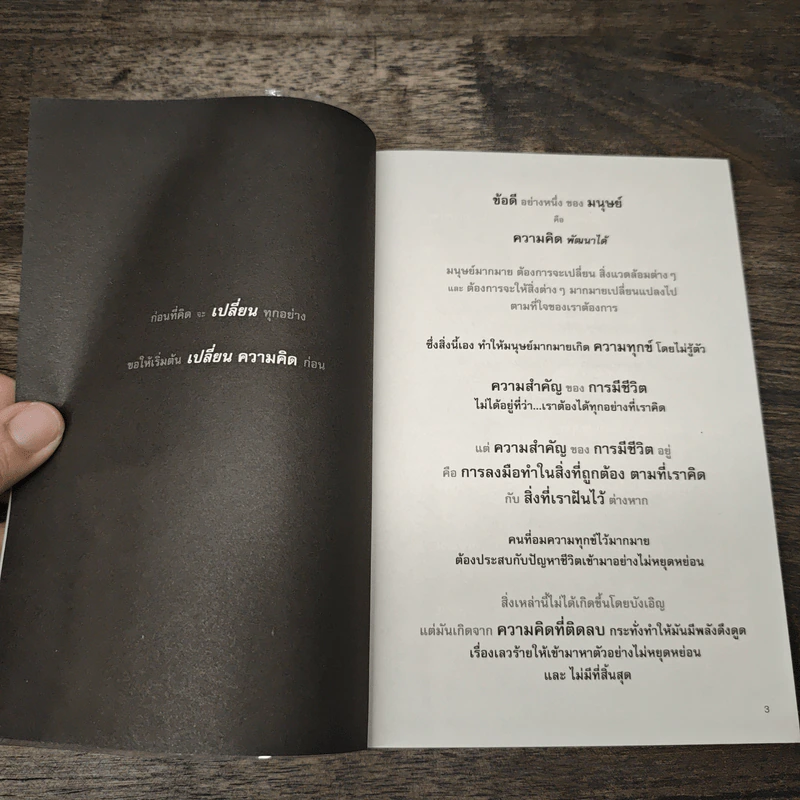 ก่อนที่คิด จะ เปลี่ยน ทุกอย่าง
ขอให้เริ่มต้น เปลี่ยน ความคิด ก่อน
ข้อดี อย่างหนึ่ง ของ มนุษย์
คือ
ความคิด พัฒนาได้
มนุษย์มากมาย ต้องการจะเปลี่ยน สิ่งแวดล้อมต่าง ๆ
และ ต้องการจะให้สิ่งต่าง ๆ มากมายเปลี่ยนแปลงไป
ตามที่ใจของเราต้องการ
ซึ่งสิ่งนี้เอง ทำให้มนุษย์มากมายเกิด ความทุกข์ โดยไม่รู้ตัว
ความสำคัญ ของ การมีชีวิต
ไม่ได้อยู่ที่ว่า...เราต้องได้ทุกอย่างที่เราคิด
แต่ ความสำคัญ ของ การมีชีวิต อยู่
คือ การลงมือทำในสิ่งที่ถูกต้อง ตามที่เราคิด
กับ สิ่งที่เราฝันไว้ ต่างหาก
คนที่อมความทุกข์ไว้มากมาย
ต้องประสบกับปัญหาชีวิตเข้ามาอย่างไม่หยุดหย่อน
สิ่งเหล่านี้ไม่ได้เกิดขึ้นโดยบังเอิญ
แต่มันเกิดจาก ความคิดที่ติดลบ กระทั่งทำให้มันมีพลังดึงดูด
เรื่องเลวร้ายให้เข้ามาหาตัวอย่างไม่หยุดหย่อน
และ ไม่มีที่สิ้นสุด
3